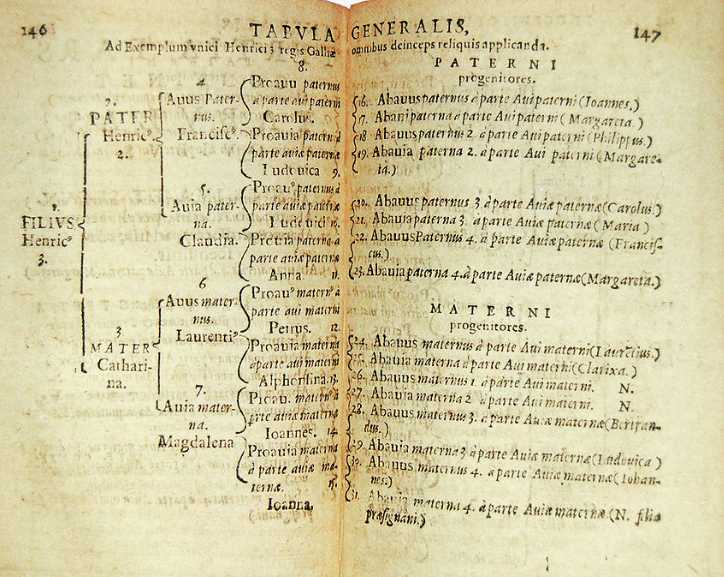 146
TABVLA GENERALIS,
147
Ad Exemplum vnici Henrici 3 regis Galliæ omnibus deinceps reliquis applicanda.
1.
FILIVS
Henricꝰ
3.
2.
PATER
Henricꝰ.
2.
3
MATER
Cathari-
na.
4
Auus Pater-
nus.
Franciscꝰ.
5.
Auia pater-
na.
Claudia.
6
Auus mater-
nus.
Laurentiꝰ
7.
Auia mater-
na.
Magdalena
8.
Proauu paternus
à parte aui paterni
Carolus.
Proauia paterna
parte aui paternæ
Ludouica 9.
Proauꝰ paternus à
parte auiæ paternæ
Ludouic
Proauia paterna à
parte auiæ paternæ
Anna 11.
Proauꝰ maternꝰ à
parte aui materni
Petrus. 12.
Proauia materna
à parte aui materni
Alphonsina. 13.
Proau. maternꝰ à
parte auiæ maternæ
Ioannes. 14
Proauia materna
à parte auiæ ma-
ternæ. 15.
Ioanna.
PATERNI
progenitores.
16. Abauus paternus à parte Aui paterni (Ioannes.)
17. Abaui paterna à parte Aui paterni (Margareta.)
18 Abauus paternus 2. à parte Aui paterni (Philippus.)
19. Abauia paterna 2. à parte Aui paterni (Margare-
ta.)
20. Abauus paternus 3 à parte Auiæ paternæ (Carolus.)
21. Abauia paterna 3. à parte Auiæ paternæ (Maria)
22. Abauus Paternus 4. à parte Auiæ paternæ (Francis-
cus.)
23. Abauia paterna 4. à parte Auiæ paternæ (Margareta.)
MATERNI
progenitores.
24. Abauus maternus à parte Aui materni (Laurētius.)
25. Abauia materna à parte Aui materni (Clarixa.)
26. Abauus maternus 1. à parte Aui materni. N.
27. Abauia materna 2 à parte Aui materni. N.
28. Abauus maternus 3. à parte Auiæ maternæ (Bertran-
dus.)
29. Abauia materna 3 à parte Auiæ maternæ (Ludouica)
30. Abauus maternus 4. à parte Auiæ maternæ (Iohan-
nes.)
31. Abauia materna 4. à parte Auiæ maternæ (N. filia
præsignani.)